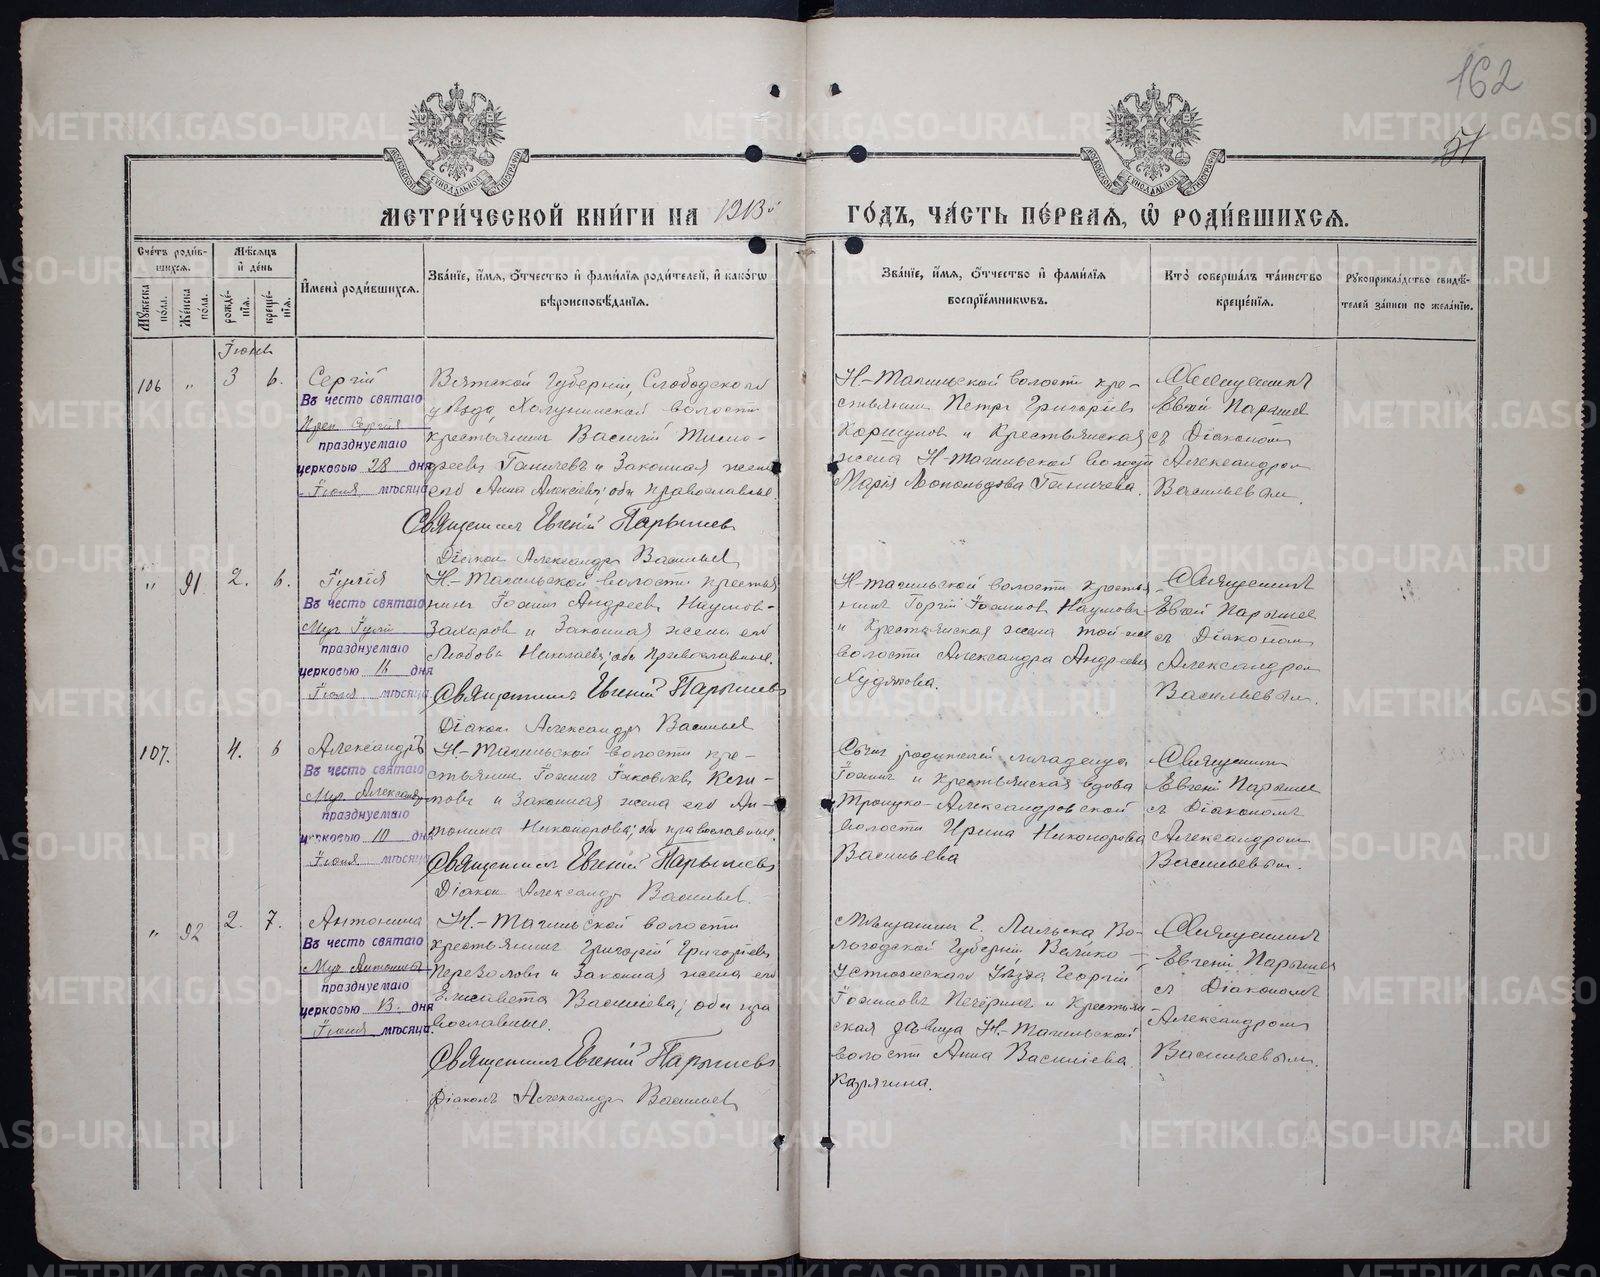 162
51
МЕТРИ́ЧЕСКОЙ КНИ́ГИ НА 1913й ГО́ДЪ, ЧА́СТЬ ПЕ́РВАЯ, Ѡ РОДИ́ВШИХСЯ.
Сче́тъ роди́в-
шихся.
Мѣ́сяцъ
и҆ де́нь
Мꙋ́жеска по́ла.
Же́нска по́ла.
рожде́-
нїя.
креще́-
нїя.
И҆мена̀ роди́вшихся.
Зва́нїе, и҆́мя, ѻ҆́тчество и҆ фами́лїя роди́телей, и҆ како́гѡ
вѣроисповѣ́данїя.
Зва́нїе, и҆́мя, ѻ҆́тчество и҆ фами́лїя
воспрїе́мникѡвъ.
Кто̀ соверша́лъ та́инство
креще́нїя.
Рꙋкоприкла́дство свидѣ́-
телей за́писи по жела́нїю.
Іюнь
106 „ 3 6.
Сергій
Въ честь святаго
Сергія
празднуемаго
церковью 28 дня
Іюня мѣсяца
Вятской Губерніи, Слободского
уѣзда, Холуницкой волости
крестьянинъ Василій Тимо-
феевъ Ганичевъ и Законная жена
его Анна Алексіева; оба православные.
Священникъ Евгеній Парышевъ
Діаконъ Александръ Васильевъ
Н-Тагильской волости кре-
стьянинъ Петръ Григоріевъ
Коршуновъ и Крестьянская
жена Н-Тагильской волости
Марія Ганичева.
Священникъ
Евгеній Парышевъ
съ Діакономъ
Александромъ
Васильевымъ.
„ 91 2. 6.
Іулія
Въ честь святаго
Муч Іуліи
празднуемаго
церковью 16 дня
Іюля мѣсяца
Н-Тагильской волости крестья
нинъ Іоаннъ Андреевъ Наумов-
Захаровъ и Законная жена его
Любовь Николаева; оба православные.
Священникъ Евгеній Парышевъ
Діаконъ Александръ Васильевъ
Н-Тагильской волости крестья
нинъ Іоанновъ Наумовъ
и Крестьянская жена той-же
волости Александра Андреева
Худякова.
Священникъ
Евгеній Парышевъ
съ Діакономъ
Александромъ
Васильевымъ.
107. 4. 6
Александръ
Въ честь святаго
Муч. Александра
празднуемаго
церковью 10 дня
Іюня мѣсяца
Н-Тагильской волости кре-
стьянинъ Іоаннъ Іаковлевъ
и Законная жена его Ан-
тонина Никонорова; оба православные.
Священникъ Евгеній Парышевъ
Діаконъ Александръ Васильевъ.
родителей младенца
Іоаннъ и Крестьянская вдова
Троицко-Александровской
волости Ирина Никонорова
Васильева
Священникъ
Евгеній Парышевъ
съ Діакономъ
Александромъ
Васильевымъ.
„ 92 2. 7.
Антонина
Въ честь святаго
Муч Антонины
празднуемаго
церковью 13. дня
Іюня мѣсяца.
Н.-Тагильской волости
крестьянинъ Григорій Григоріевъ
Перезоловъ и Законная жена его
Елисавета Василіева; оба пра
вославные.
Священникъ Евгеній Парышевъ
Діаконъ Александръ Васильевъ
Мѣщанинъ г. Лальска Во-
логодской Губерніи, Велико-
Устюжскаго Уѣзда Георгій
Іоанновъ Печеринъ и Крестьян
ская дѣвица Н-Тагильской
волости Анна Василіева
Карягина.
Священникъ
Евгеній Парышевъ
съ Діакономъ
Александромъ
Васильевымъ.
METRIKI.GASO-URAL.RU